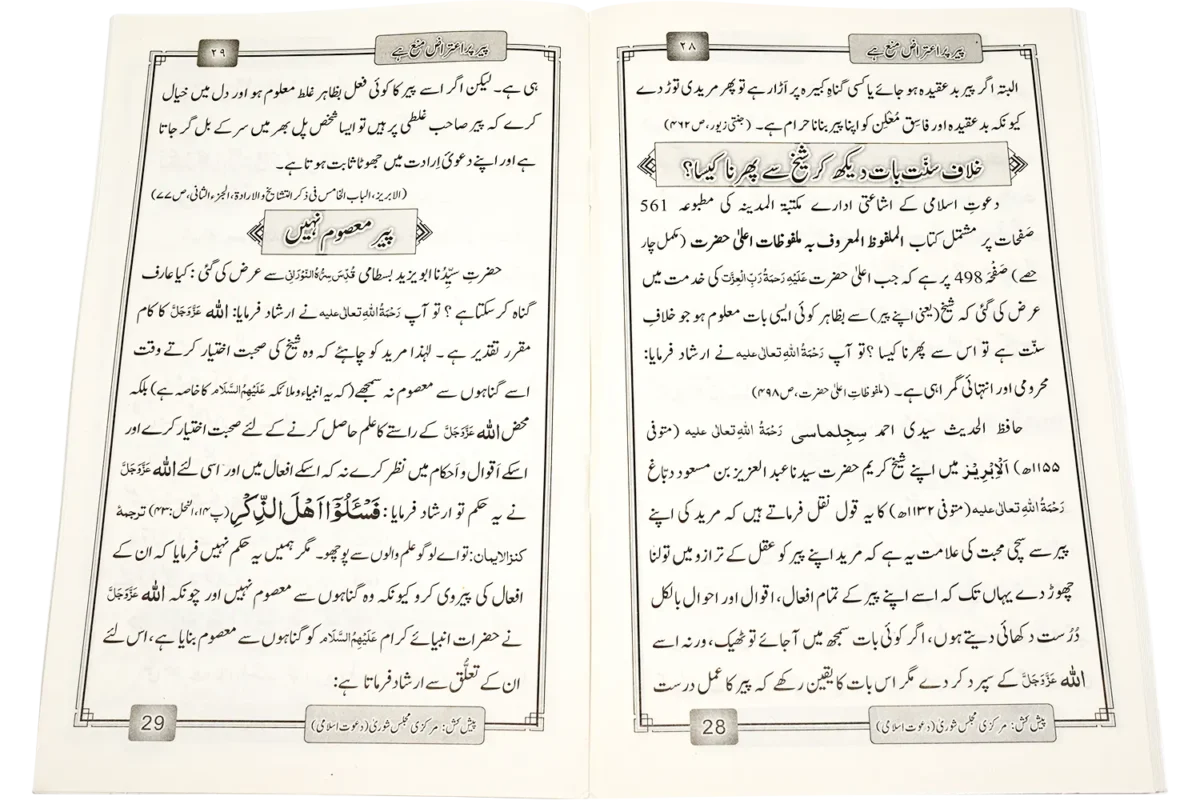 ۲۸
پیر پر اعتراض منع ہے
البتہ اگر پیر بدعقیدہ ہو جائے یا کسی گناہِ کبیرہ پر اَڑا رہے تو پھر مریدی توڑ دے
کیونکہ بدعقیدہ اور فاسِق مُعْلِن کو اپنا پیر بنانا حرام ہے۔ (جنتی زیور، ص۴۶۲)
خلافِ سنّت بات دیکھ کر شیخ سے پھرنا کیسا؟
دعوتِ اسلامی کے اشاعتی ادارے مکتبۃ المدینہ کی مطبوعہ 561
صَفحات پر مشتمل کتاب الملفوظ المعروف بہ ملفوظات اعلیٰ حضرت (مکمل چار
حصے) صَفْحَہ 498 پر ہے کہ جب اعلیٰ حضرت عَلَیْہِ رَحمَۃُ رَبِّ الْعِزَّت کی خدمت میں
عرض کی گئی کہ شیخ (یعنی اپنے پیر) سے بظاہر کوئی ایسی بات معلوم ہو جو خلافِ
سنّت ہے تو اس سے پھرنا کیسا؟ تو آپ رَحْمَۃُ اللہِ تعالٰی علیہ نے ارشاد فرمایا:
محرومی اور انتہائی گمراہی ہے۔ (ملفوظاتِ اعلیٰ حضرت، ص۴۹۸)
حافظ الحدیث سیدی احمد سِجِلماسی رَحْمَۃُ اللہِ تعالٰی علیہ (متوفی
۱۱۵۵ھ) اَلْاِبْرِیْز میں اپنے شیخ کریم حضرت سیدنا عبد العزیز بن مسعود دبّاغ
رَحْمَۃُ اللہِ تعالٰی علیہ (متوفی ۱۱۳۲ھ) کا یہ قول نقل فرماتے ہیں کہ مرید کی اپنے
پیر سے سچی محبت کی علامت یہ ہے کہ مرید اپنے پیر کو عقل کے ترازو میں تولنا
چھوڑ دے یہاں تک کہ اسے اپنے پیر کے تمام افعال، اقوال اور احوال بالکل
دُرُست دکھائی دیتے ہوں، اگر کوئی بات سمجھ میں آجائے تو ٹھیک، ورنہ اسے
اللہ عَزَّوَجَلَّ کے سپرد کر دے مگر اس بات کا یقین رکھے کہ پیر کا عمل درست
28
پیش کش: مرکزی مجلس شوریٰ (دعوت اسلامی)
۲۹
پیر پر اعتراض منع ہے
ہی ہے۔ لیکن اگر اسے پیر کا کوئی فعل بظاہر غلط معلوم ہو اور دل میں خیال
کرے کہ پیر صاحب غلطی پر ہیں تو ایسا شخص پل بھر میں سر کے بل گر جاتا
ہے اور اپنے دعویٰ اِرادت میں جھوٹا ثابت ہوتا ہے۔
(الابریز، الباب الخامس فی ذکر التشایخ والارادۃ، الجزء الثانی، ص۷۷)
پیر معصوم نہیں
حضرتِ سیّدُنا ابو یزید بسطامی قُدِّسَ سِرُّہُ النُّوْرَانِی سے عرض کی گئی: کیا عارف
گناہ کر سکتا ہے؟ تو آپ رَحْمَۃُ اللہِ تعالٰی علیہ نے ارشاد فرمایا: اللہ عَزَّوَجَلَّ کا کام
مقرر تقدیر ہے۔ لہٰذا مرید کو چاہئے کہ وہ شیخ کی صحبت اختیار کرتے وقت
اسے گناہوں سے معصوم نہ سمجھے (کہ یہ انبیاء و ملائکہ عَلَیْہِمُ السَّلَام کا خاصہ ہے) بلکہ
محض اللہ عَزَّوَجَلَّ کے راستے کا علم حاصل کرنے کے لئے صحبت اختیار کرے اور
اسکے اَقوال و اَحکام میں نظر کرے نہ کہ اسکے افعال میں اور اسی لئے اللہ عَزَّوَجَلَّ
نے یہ حکم تو ارشاد فرمایا: فَسْـَٔلُوْۤا اَهْلَ الذِّكْرِ (پ۱۴، النحل:۴۳) ترجمۂ
کنزالایمان: تو اے لوگو علم والوں سے پوچھو۔ مگر ہمیں یہ حکم نہیں فرمایا کہ ان کے
افعال کی پیروی کرو کیونکہ وہ گناہوں سے معصوم نہیں اور چونکہ اللہ عَزَّوَجَلَّ
نے حضرات انبیائے کرام عَلَیْہِمُ السَّلَام کو گناہوں سے معصوم بنایا ہے، اس لئے
ان کے تعلُّق سے ارشاد فرماتا ہے:
29
پیش کش: مرکزی مجلس شوریٰ (دعوت اسلامی)